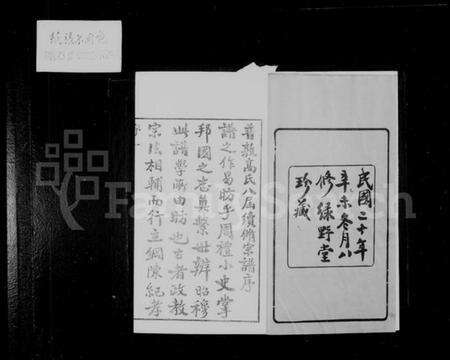 民國二十年
辛未冬月八
修綠野堂
珍藏
首敦高氏八屆續修宗譜序
譜之作昜昉乎周禮小史掌
邦國之志奠繫世辨昭穆
此譜學所由昉也古者政教
宗法相輔而行立綱陳紀孝
FamilySearch